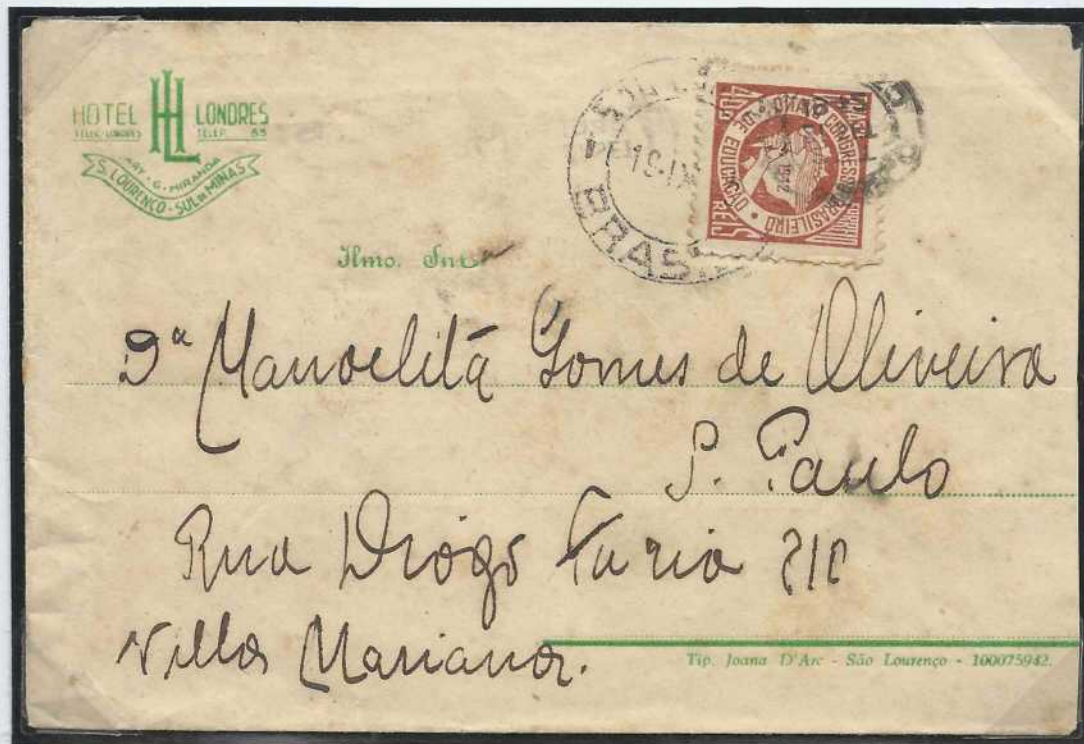 HOTEL LH LONDRES
TELEG. LONDRES TELEF. 85
G. MIRANDA
S. LOURENÇO - SUL DE MINAS
BRASIL
19-IX
OITAVO CONGRESSO BRASILEIRO DE EDUCAÇÃO
1942
BRASIL CORREIO
400 RÉIS
Ilmo. Snr.
Dª Manoelita Gomes de Oliveira
S. Paulo
Rua Diogo Faria
Villa Mariana.
Tip. Joana D'Arc - São Lourenço - 100075942.